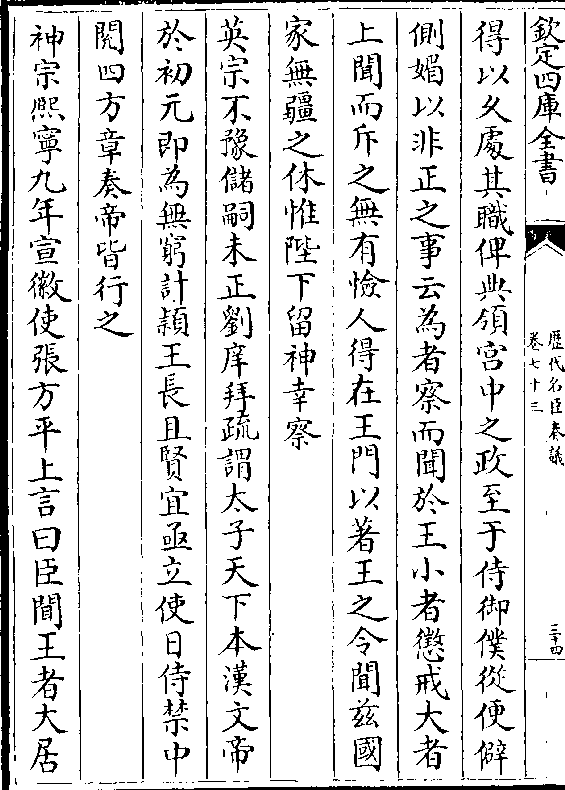 欽定四庫全書
歷代名臣奏議
卷七十三
三十四
得以久處其職俾典領宮中之政至于侍御僕從便僻
側媚以非正之事云為者察而聞於王小者懲戒大者
上聞而斥之無有憸人得在王門以著王之令聞兹國
家無疆之休惟陛下留神幸察
英宗不豫儲嗣未正劉庠拜疏謂太子天下本漢文帝
於初元即為無窮計頴王長且賢宜亟立使日侍禁中
閱四方章奏帝皆行之
神宗熙寧九年宣徽使張方平上言曰臣聞王者大居